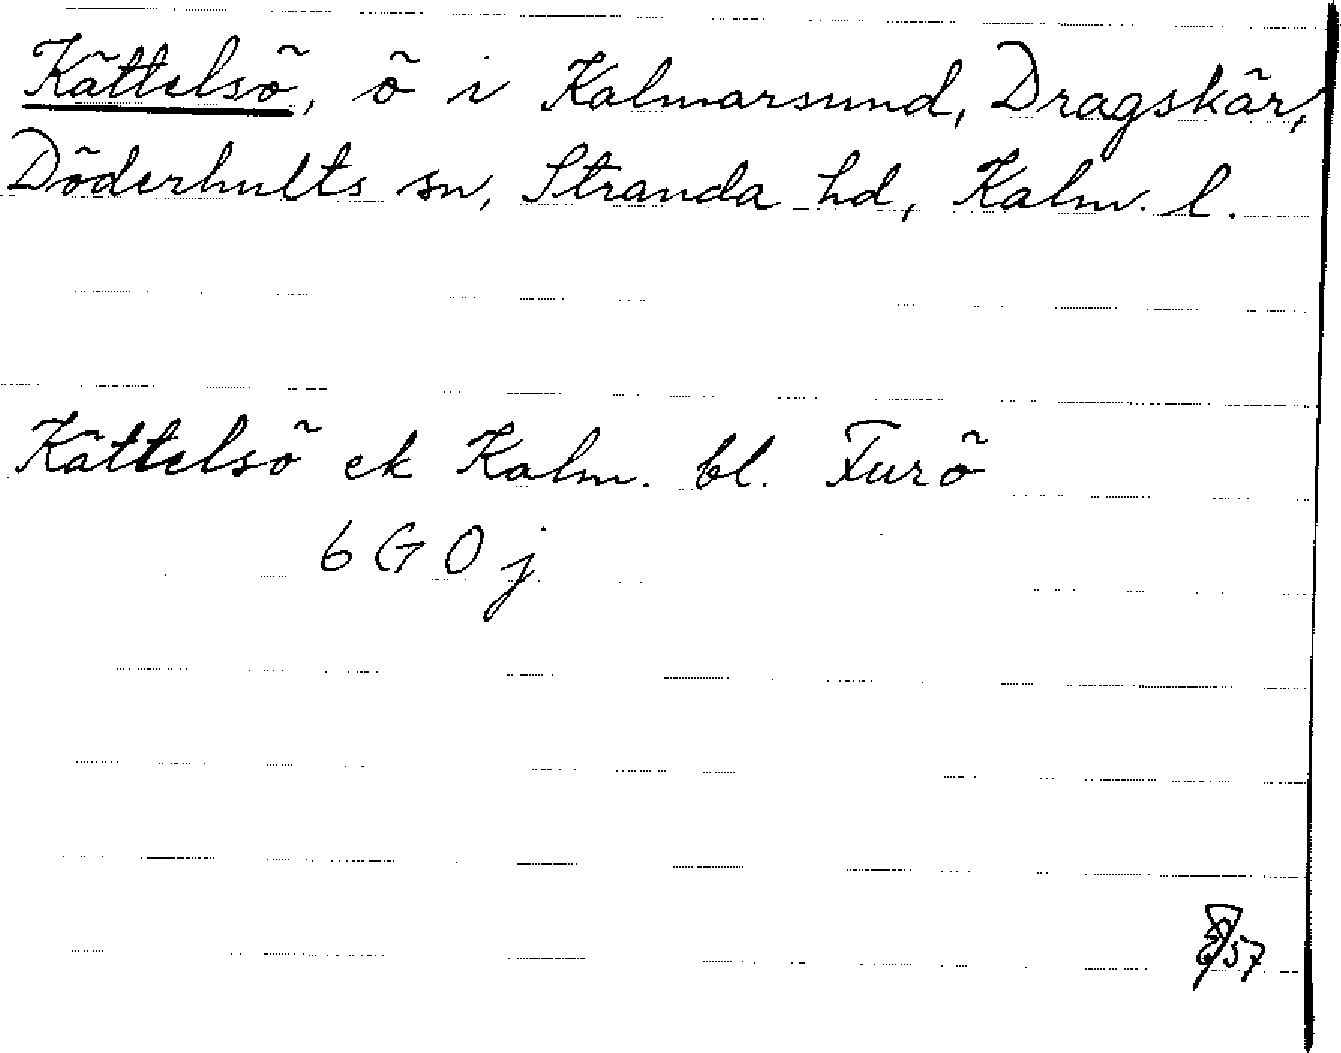 Kättelsö, ö i Kalmarsund, Dragskär,
Döderhults sn, Stranda hd, Kalm. l.
Kättelsö ek Kalm. bl. Furö
6 G 0 j
57